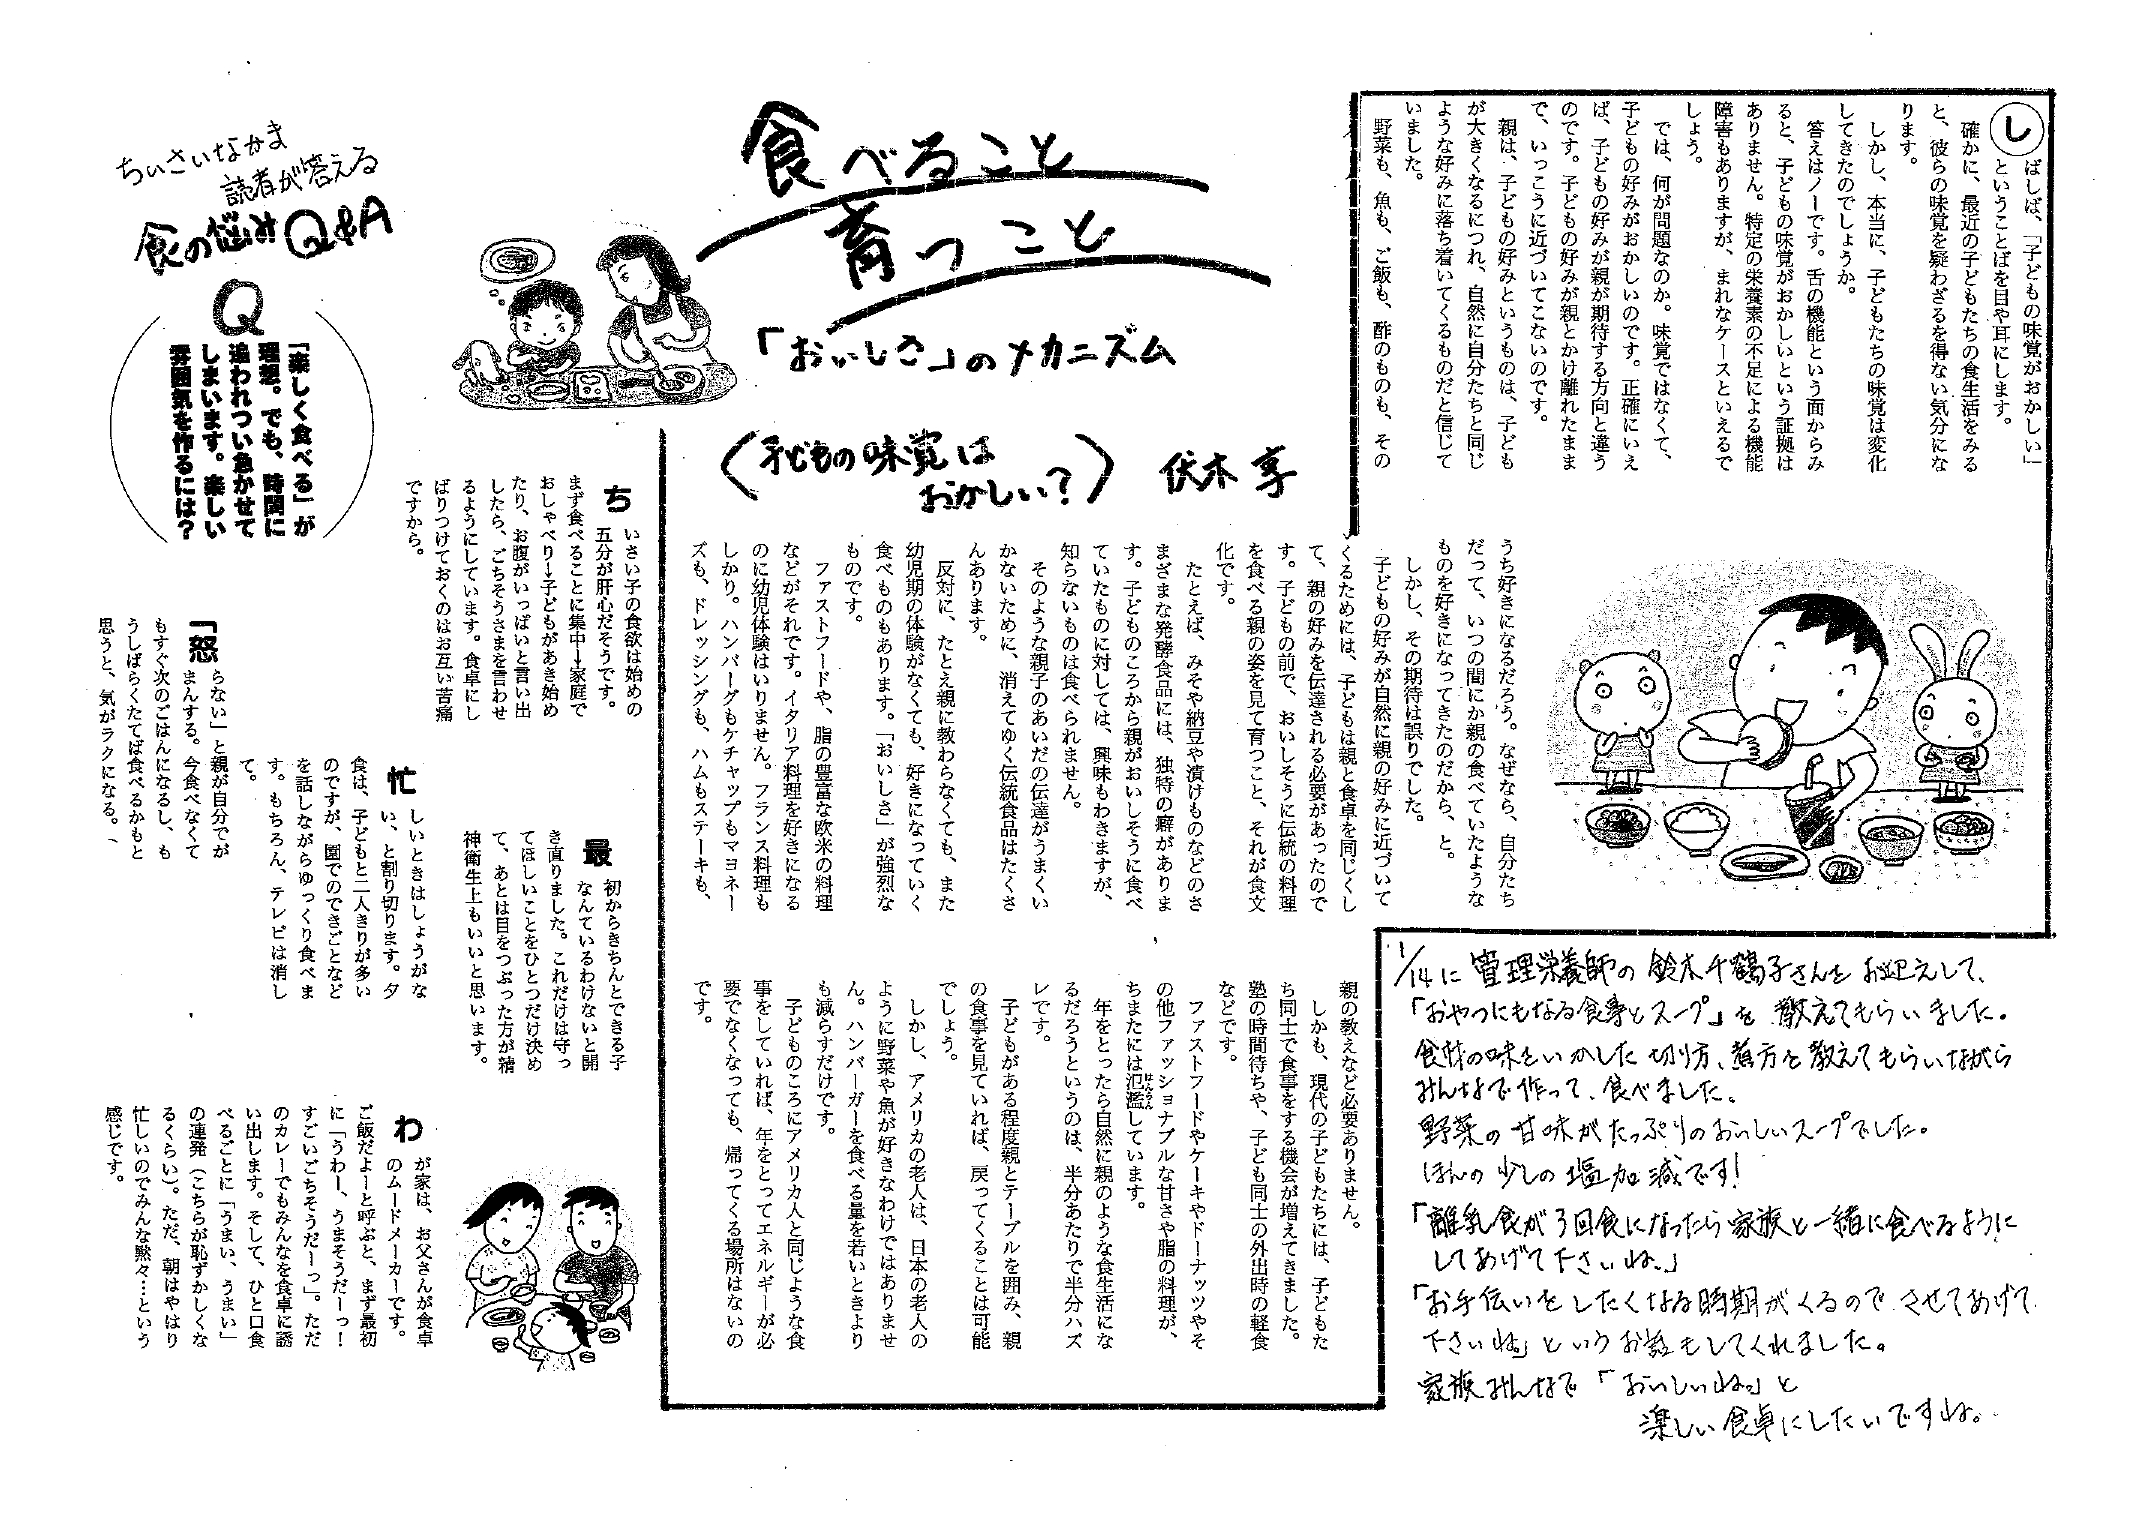 食べること
育つこと
「おいしさ」のメカニズム
(子どもの味覚は
おかしい?)
伏木 享
しばしば、「子どもの味覚がおかしい」
ということばを目や耳にします。
確かに、最近の子どもたちの食生活をみる
と、彼らの味覚を疑わざるを得ない気分にな
ります。
しかし、本当に、子どもたちの味覚は変化
してきたのでしょうか。
答えはノーです。舌の機能という面からみ
ると、子どもの味覚がおかしいという証拠は
ありません。特定の栄養素の不足による機能
障害もありますが、まれなケースといえるで
しょう。
では、何が問題なのか。味覚ではなくて、
子どもの好みがおかしいのです。正確にいえ
ば、子どもの好みが親が期待する方向と違う
のです。子どもの好みが親とかけ離れたまま
で、いっこうに近づいてこないのです。
親は、子どもの好みというものは、子ども
が大きくなるにつれ、自然に自分たちと同じ
ような好みに落ち着いてくるものだと信じて
いました。
野菜も、魚も、ご飯も、酢のものも、その
うち好きになるだろう。なぜなら、自分たち
だって、いつの間にか親の食べていたような
ものを好きになってきたのだから、と。
しかし、その期待は誤りでした。
子どもの好みが自然に親の好みに近づいて
くるためには、子どもは親と食卓を同じくし
て、親の好みを伝達される必要があったので
す。子どもの前で、おいしそうに伝統の料理
を食べる親の姿を見て育つこと、それが食文
化です。
たとえば、みそや納豆や漬けものなどのさ
まざまな発酵食品には、独特の癖がありま
す。子どものころから親がおいしそうに食べ
ていたものに対しては、興味もわきますが、
知らないものは食べられません。
そのような親子のあいだの伝達がうまくい
かないために、消えてゆく伝統食品はたくさ
んあります。
反対に、たとえ親に教わらなくても、また
幼児期の体験がなくても、好きになっていく
食べものもあります。「おいしさ」が強烈な
ものです。
ファストフードや、脂の豊富な欧米の料理
などがそれです。イタリア料理を好きになる
のに幼児体験はいりません。フランス料理も
しかり。ハンバーグもケチャップもマヨネー
ズも、ドレッシングも、ハムもステーキも、
親の教えなど必要ありません。
しかも、現代の子どもたちには、子どもた
ち同士で食事をする機会が増えてきました。
塾の時間待ちや、子ども同士の外出時の軽食
などです。
ファストフードやケーキやドーナッツやそ
の他ファッショナブルな甘さや脂の料理が、
ちまたには氾濫しています。
はんらん
年をとったら自然に親のような食生活にな
るだろうというのは、半分あたりで半分ハズ
レです。
子どもがある程度親とテーブルを囲み、親
の食事を見ていれば、戻ってくることは可能
でしょう。
しかし、アメリカの老人は、日本の老人の
ように野菜や魚が好きなわけではありませ
ん。ハンバーガーを食べる量を若いときより
も減らすだけです。
子どものころにアメリカ人と同じような食
事をしていれば、年をとってエネルギーが必
要でなくなっても、帰ってくる場所はないの
です。
1/14に管理栄養師の鈴木千鶴子さんをお迎えして、
「おやつにもなる食事とスープ」を教えてもらいました。
食材の味をいかした切り方、煮方を教えてもらいながら
みんなで作って、食べました。
野菜の甘味がたっぷりのおいしいスープでした。
ほんの少しの塩加減です!
「離乳食が3回食になったら家族と一緒に食べるように
してあげて下さいね。」
「お手伝いをしたくなる時期がくるのでさせてあげて
下さいね」というお話もしてくれました。
家族みんなで「おいしいね。」と
楽しい食卓にしたいですね。
ちいさいなかま
読者が答える
食の悩みQ&A
Q
「楽しく食べる」が
理想。でも、時間に
追われつい急かせて
しまいます。楽しい
雰囲気を作るには?
ちいさい子の食欲は始めの
五分が肝心だそうです。
まず食べることに集中→家庭で
おしゃべり→子どもがあき始め
たり、お腹がいっぱいと言い出
したら、ごちそうさまを言わせ
るようにしています。食卓にし
ばりつけておくのはお互い苦痛
ですから。
「怒らない」と親が自分でが
まんする。今食べなくて
もすぐ次のごはんになるし、も
うしばらくたてば食べるかもと
思うと、気がラクになる。
忙しいときはしょうがな
い、と割り切ります。夕
食は、子どもと二人きりが多い
のですが、園でのできごとなど
を話しながらゆっくり食べま
す。もちろん、テレビは消し
て。
最初からきちんとできる子
なんているわけないと開
き直りました。これだけは守っ
てほしいことをひとつだけ決め
て、あとは目をつぶった方が精
神衛生上もいいと思います。
わが家は、お父さんが食卓
のムードメーカーです。
ご飯だよーと呼ぶと、まず最初
に「うわー、うまそうだーっ!
すごいごちそうだーっ」。ただ
のカレーでもみんなを食卓に誘
い出します。そして、ひと口食
べるごとに「うまい、うまい」
の連発(こちらが恥ずかしくな
るくらい)。ただ、朝はやはり
忙しいのでみんな黙々…という
感じです。